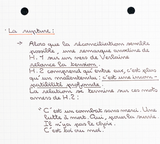 La rupture :
→ Alors que la réconciliation semble
possible, une remarque anodine de
M. 1 sur un vers de Verlaine
relance la tension
M. 2 comprend qu'entre eux, c'est plus
qu'un malentendu : c'est une incom-
patibilité profonde
La relation se termine sur ces mots
amers de M. 2 :
"C'est un combat sans merci. Une
lutte à mort. Oui, pour la survie.
Il n'y a pas le choix.
C'est toi ou moi."